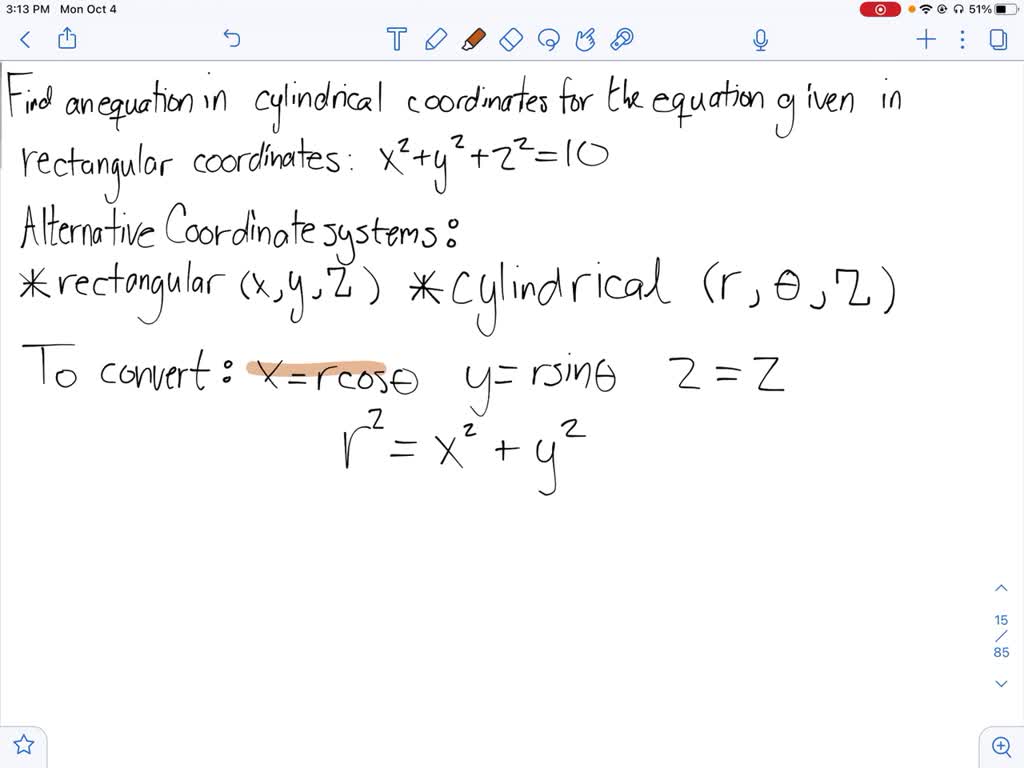 3:13 PM Mon Oct 4
51%
T
Find an equation in cylindrical coordinates for the equation given in
rectangular coordinates: x²+y²+z²=10
Alternative Coordinate systems:
*rectangular (x,y,z) *cylindrical (r,θ,z)
To convert: x=rcosθ y=rsinθ z=z
r²=x²+y²
15
/
85